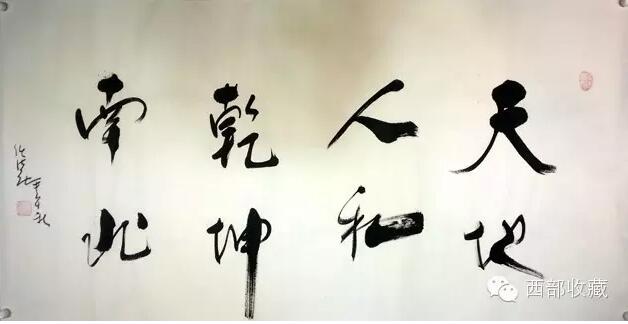 天地
人和
乾坤
南北
西部收藏